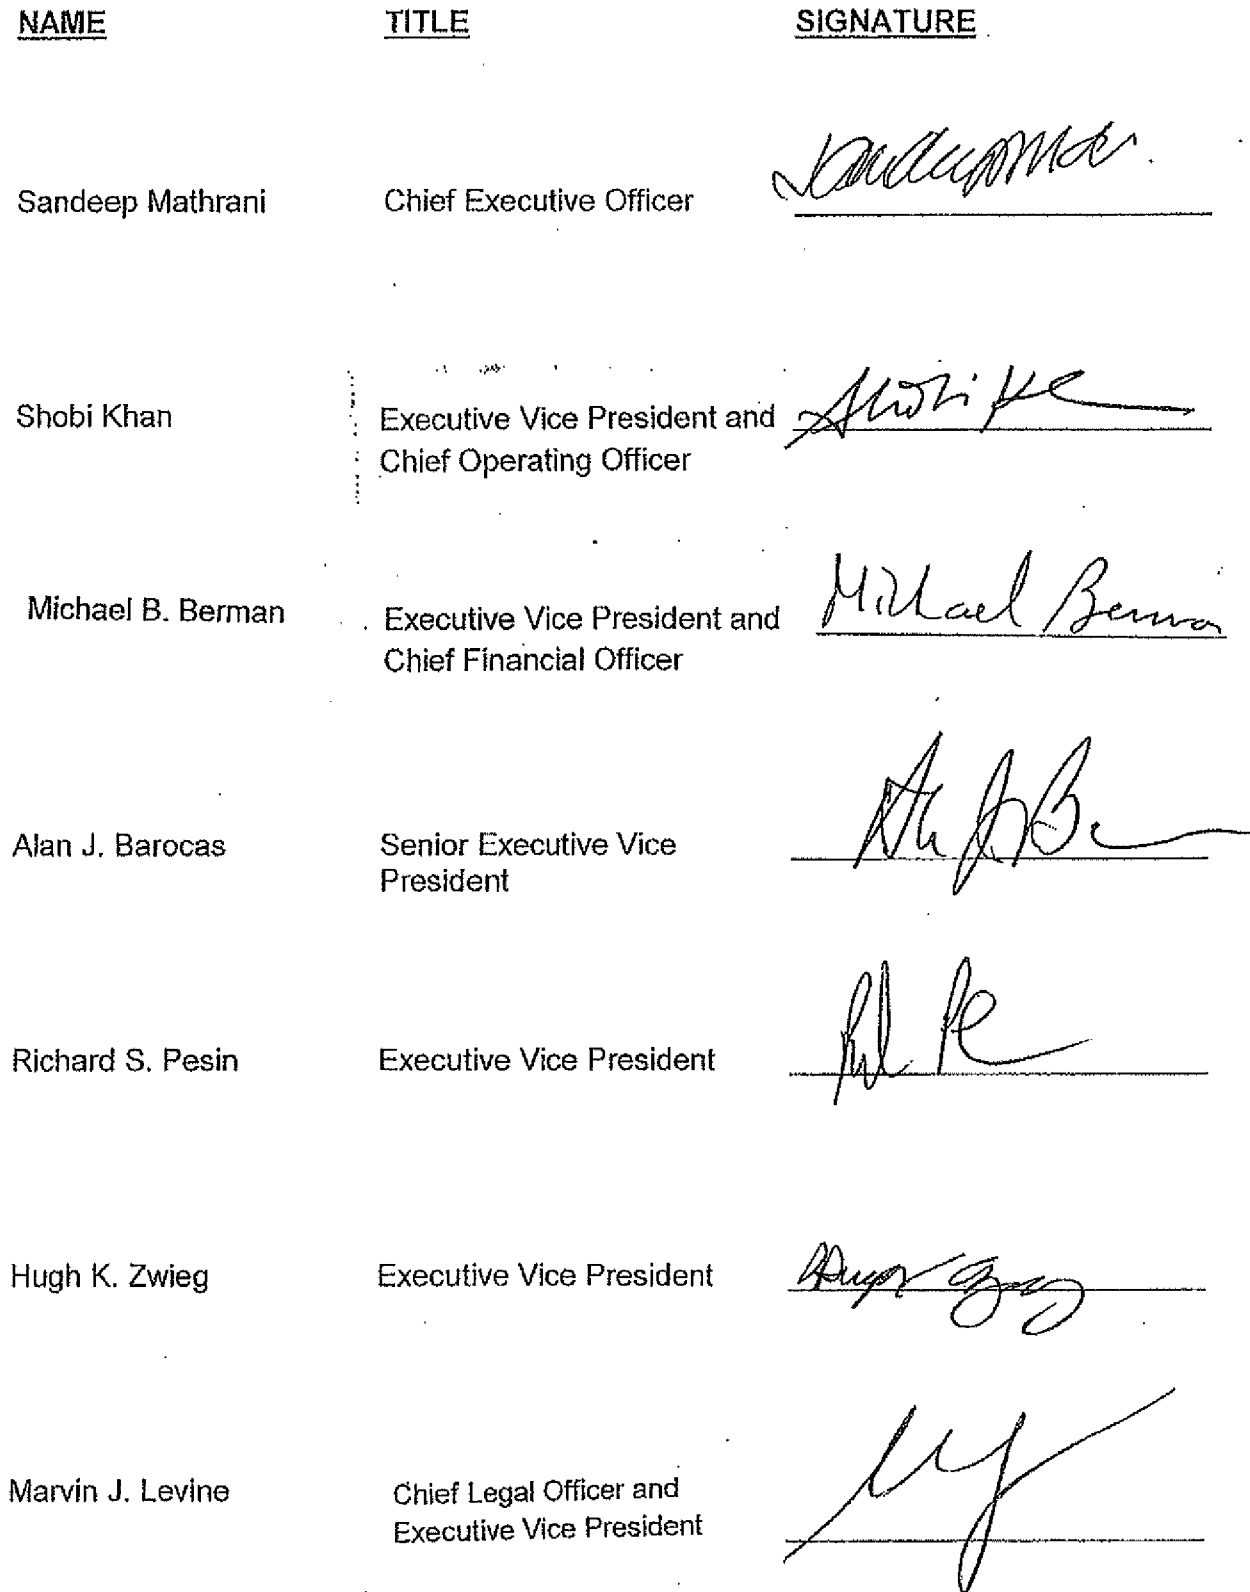 NAME TITLE SIGNATURE
Sandeep Mathrani Chief Executive Officer
Shobi Khan Executive Vice President and
Chief Operating Officer
Michael B. Berman Executive Vice President and
Chief Financial Officer
Michael Berman
Alan J. Barocas Senior Executive Vice
President
Richard S. Pesin Executive Vice President
Hugh K. Zwieg Executive Vice President
Marvin J. Levine Chief Legal Officer and
Executive Vice President